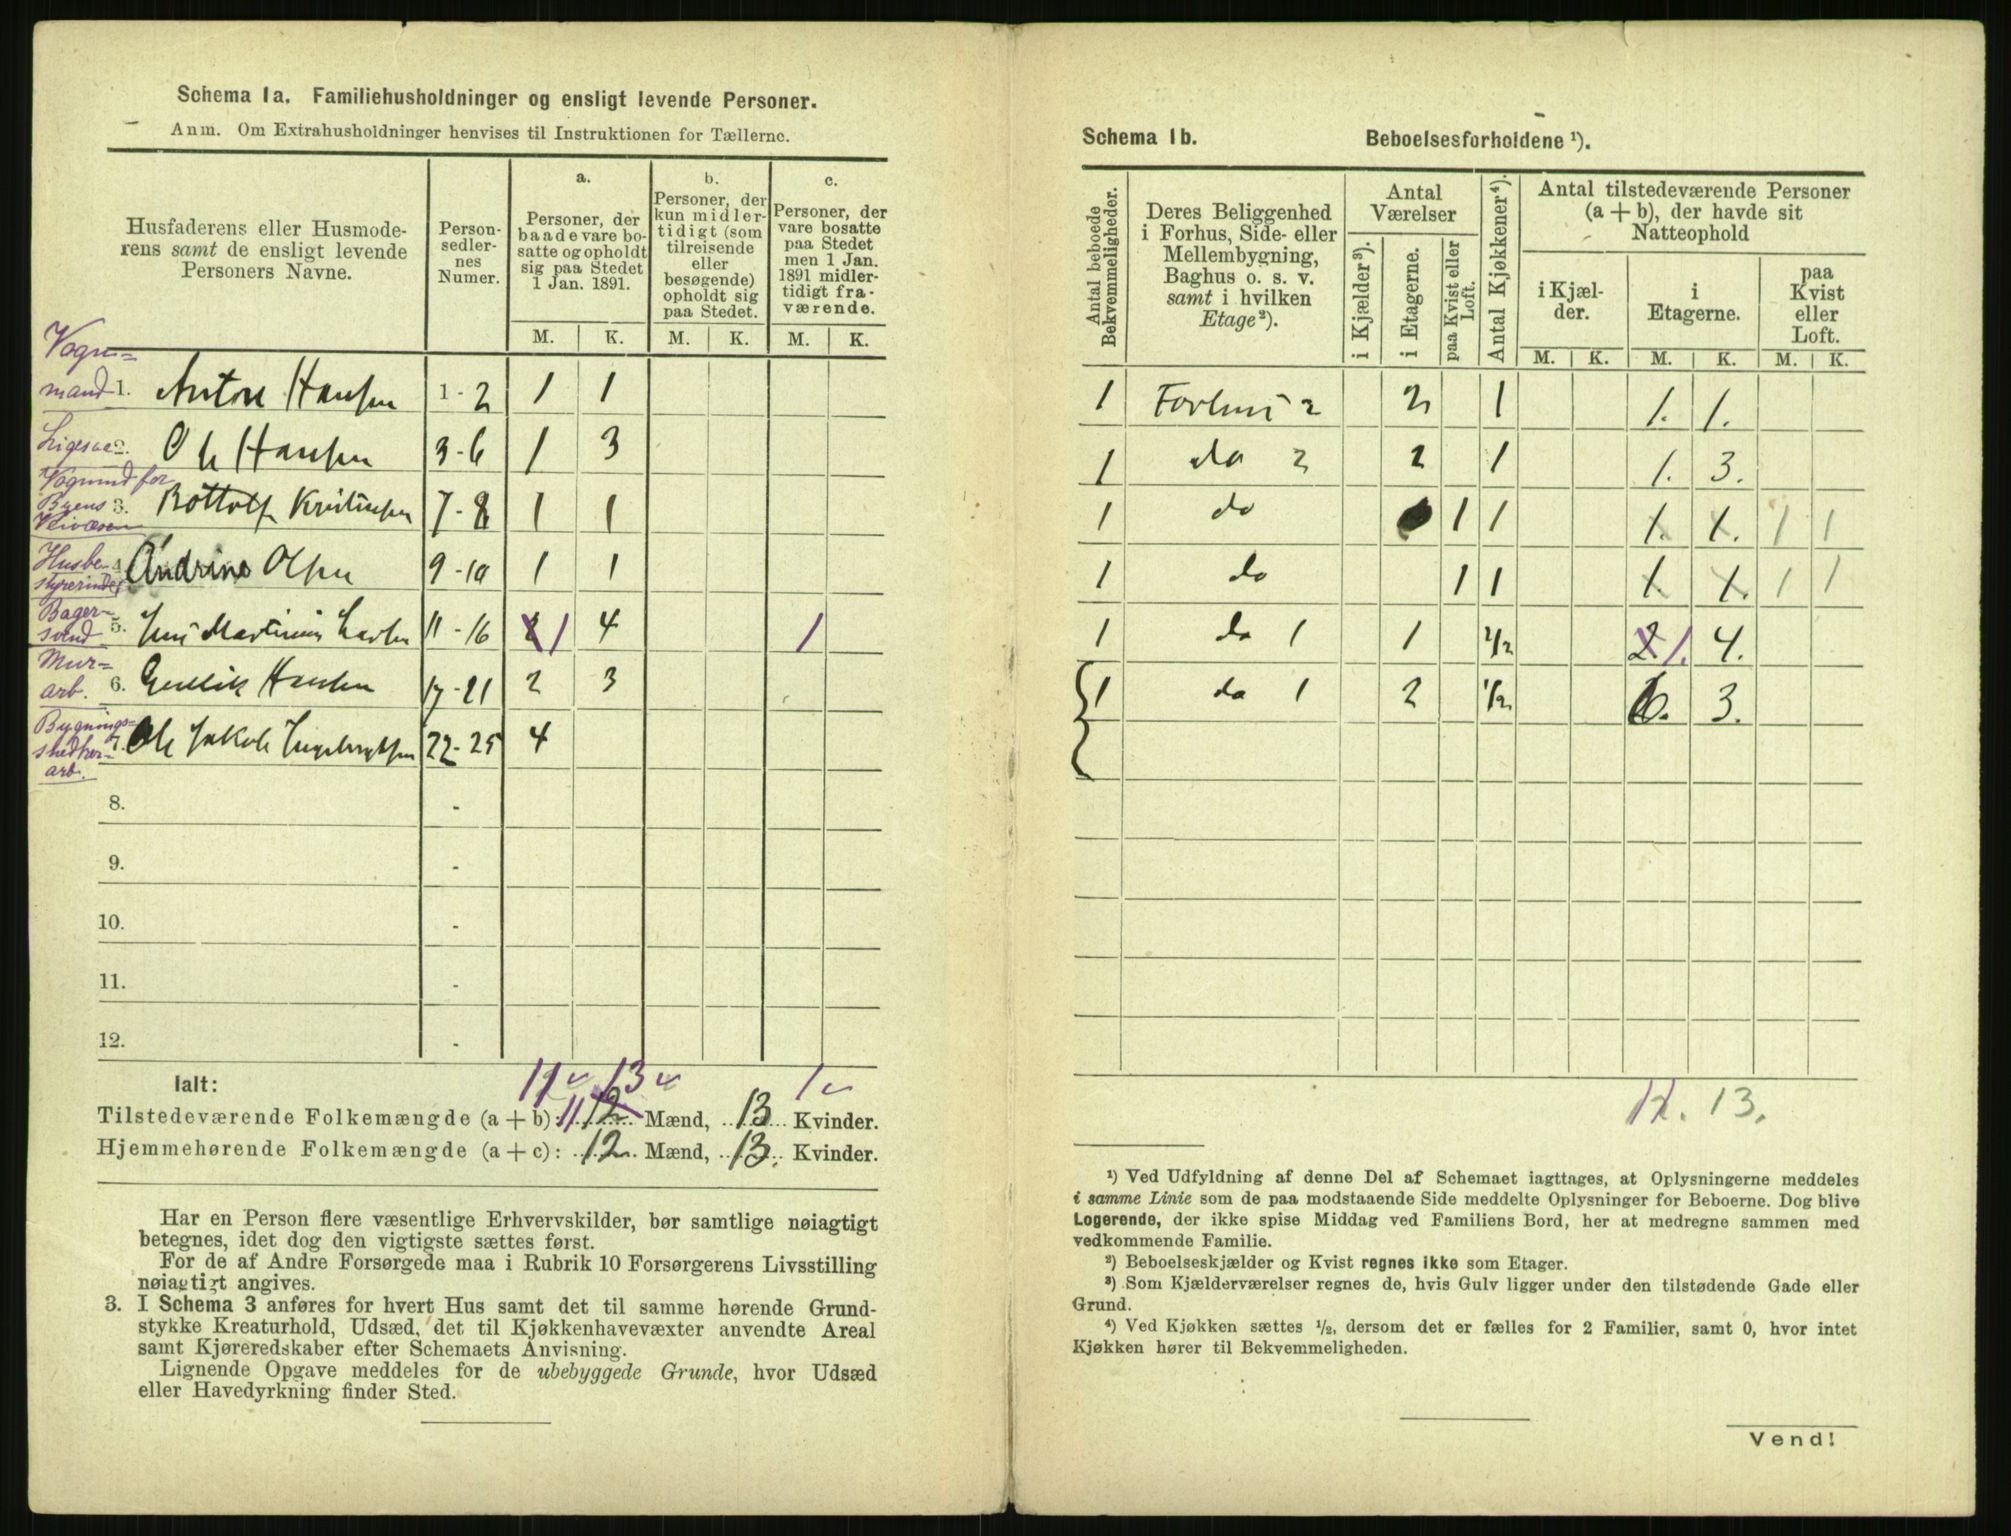 Schema 1a. Familiehusholdninger og ensligt levende Personer.
Anm. Om Extrahusholdninger henvises til Instruktionen for Tællerne.
Husfaderens eller Husmode-
rens samt de ensligt levende
Personers Navne.
Person-
sedler-
nes
Numer.
a.
Personer, der
baade vare bo-
satte og opholdt
sig paa Stedet
1 Jan. 1891.
b.
Personer, der
kun midler-
tidigt (som
tilreisende
eller
besøgende)
opholdt sig
paa Stedet.
c.
Personer, der
vare bosatte
paa Stedet
men 1 Jan.
1891 midler-
tidigt fra-
værende.
M. K. M. K. M. K.
Vogn=
mand 1. Anton Hansen 1-2 1 1
Ligesaa 2. Ole Hansen 3-6 1 3
Vogmnd for
Byens 3. Bottolf Kristiansen 7-8 1 1
Veivæsen
Husbe- 4. Andrine Olsen 9-10 1 1
styrerinde
Bager-
svend 5. Jens Martinius Larsen 11-16 2 1 4 1
Mur=
arb. 6. Gullik Hansen 17-21 2 3
Bygnings=
snedker= 7. Ole Jakob Ingebregtsen 22-25 4
arb.
8. -
9. -
10. -
11. -
12. -
11 13 1
Ialt:
Tilstedeværende Folkemængde (a + b): 11 12 Mænd, 13 Kvinder.
Hjemmehørende Folkemængde (a + c): 12 Mænd, 13. Kvinder.
Har en Person flere væsentlige Erhvervskilder, bør samtlige nøiagtigt
betegnes, idet dog den vigtigste sættes først.
For de af Andre Forsørgede maa i Rubrik 10 Forsørgerens Livsstilling
nøiagtigt angives.
3. I Schema 3 anføres for hvert Hus samt det til samme hørende Grund-
stykke Kreaturhold, Udsæd, det til Kjøkkenhavevæxter anvendte Areal
samt Kjøreredskaber efter Schemaets Anvisning.
Lignende Opgave meddeles for de ubebyggede Grunde, hvor Udsæd
eller Havedyrkning finder Sted.
Schema 1b. Beboelsesforholdene ¹).
Antal beboede
Bekvemmeligheder.
Deres Beliggenhed
i Forhus, Side- eller
Mellembygning,
Baghus o. s. v.
samt i hvilken
Etage²).
Antal
Værelser
i Kjælder³).
i Etagerne.
paa Kvist eller
Loft.
Antal Kjøkkener⁴).
Antal tilstedeværende Personer
(a + b), der havde sit
Natteophold
i Kjæl-
der.
i
Etagerne.
paa
Kvist
eller
Loft.
M. K. M. K. M. K.
1 Forhus 2 2 1 1. 1.
1 do 2 2 1 1. 3.
1 do 1 1 1. 1. 1 1
1 do 1 1 1. 1. 1 1
1 do 1 1 1/2 2. 1. 4.
1 do 1 2 1/2 6. 3.
12. 13.
¹) Ved Udfyldning af denne Del af Schemaet iagttages, at Oplysningerne meddeles
i samme Linie som de paa modstaaende Side meddelte Oplysninger for Beboerne. Dog blive
Logerende, der ikke spise Middag ved Familiens Bord, her at medregne sammen med
vedkommende Familie.
²) Beboelseskjælder og Kvist regnes ikke som Etager.
³) Som Kjælderværelser regnes de, hvis Gulv ligger under den tilstødende Gade eller
Grund.
⁴) Ved Kjøkken sættes ¹/₂, dersom det er fælles for 2 Familier, samt 0, hvor intet
Kjøkken hører til Bekvemmeligheden.
Vend!